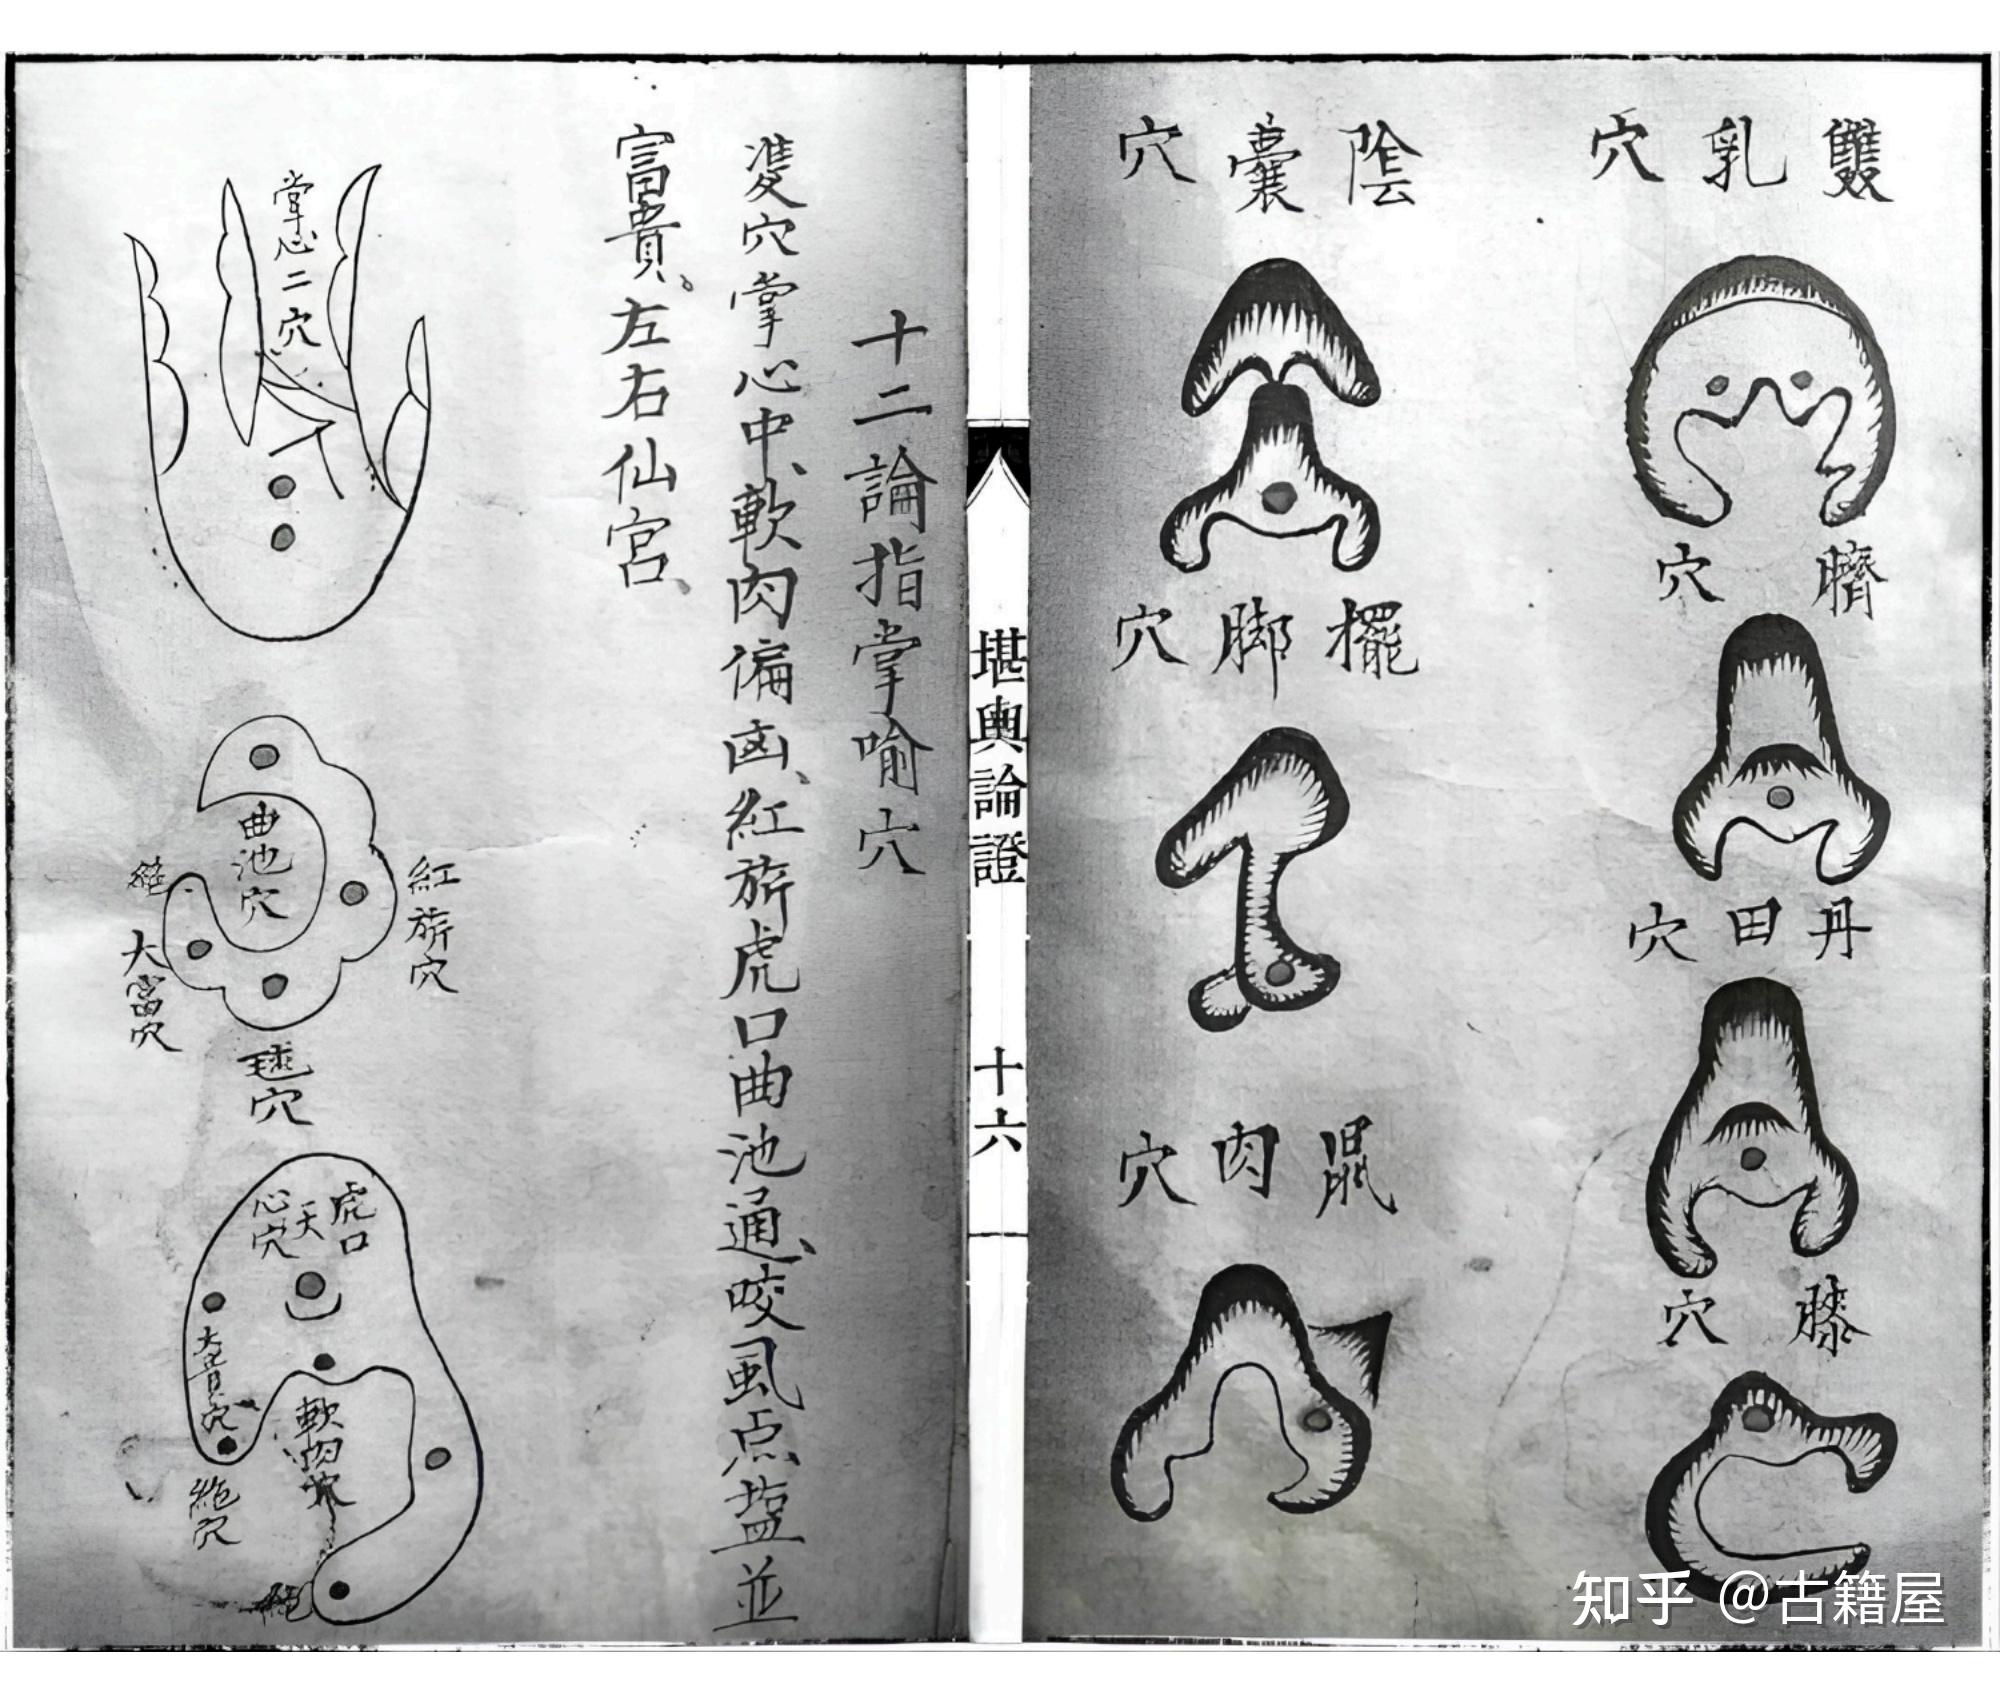 雙乳穴
臍穴
丹田穴
膝穴
陰囊穴
擺脚穴
鼠肉穴
堪輿論證
十六
十二論指掌喻穴
雙穴掌心中、軟肉偏凼、紅旂虎口曲池通、咬風点塩並
富貴。左右仙宮、
掌心二穴
曲池穴
紅旂穴
絕
大富穴
毬穴
虎口
天
心穴
大富穴
軟肉穴
絕穴
絕
知乎 @古籍屋